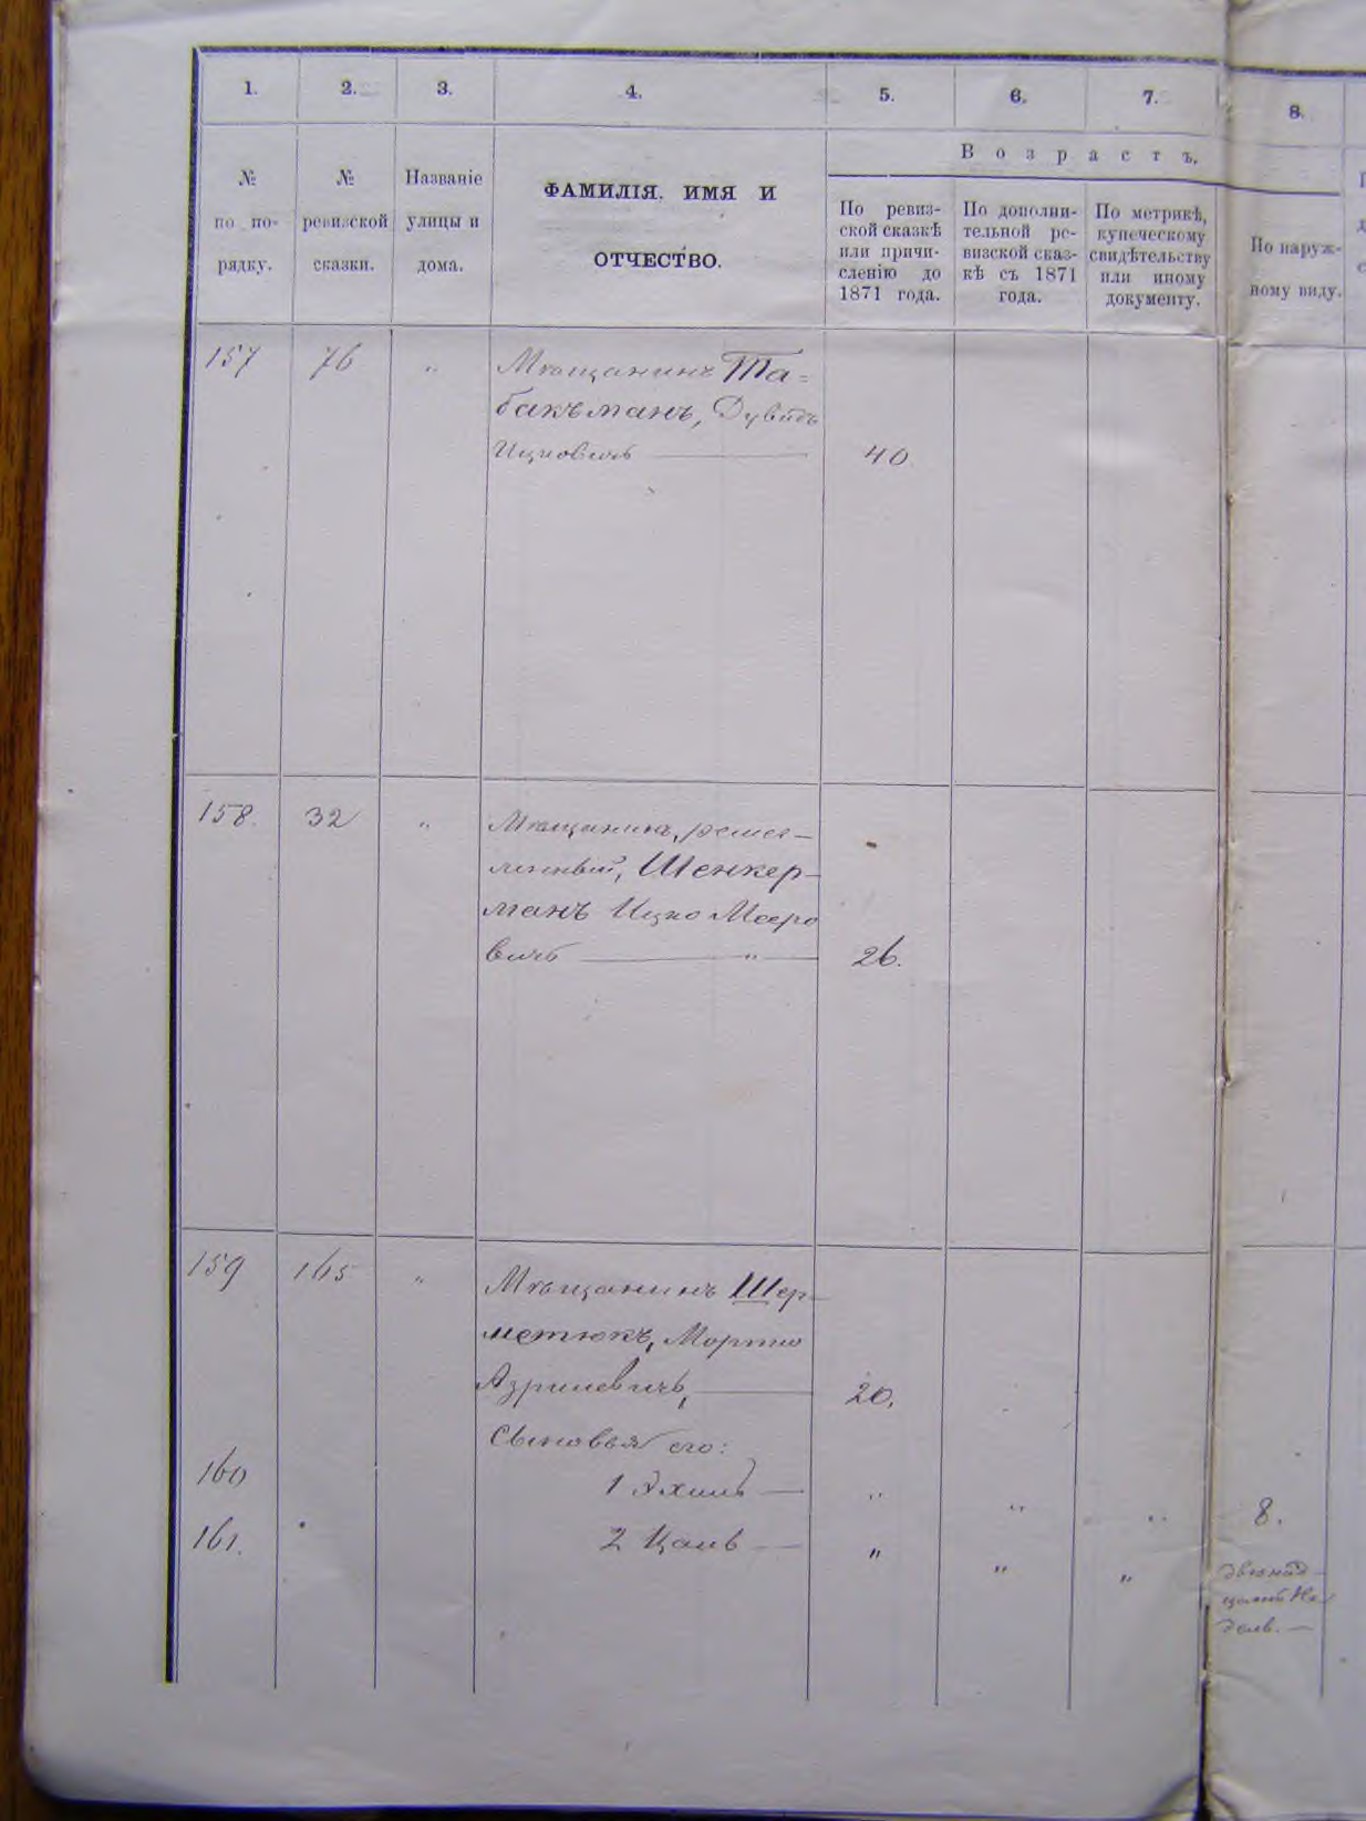 1. 2. 3. 4. 5. 6. 7. 8.
№ по по-рядку.
№ ревизской сказки.
Названіе улицы и дома.
ФАМИЛІЯ, ИМЯ И
ОТЧЕСТВО.
Возрастъ.
По ревиз-
ской сказкѣ
или причи-
сленію до
1871 года.
По дополни-
тельной ре-
визской сказ-
кѣ съ 1871
года.
По метрикѣ,
купеческому
свидѣтельству
или иному
документу.
По наруж-
ному виду.
157 76 " Мѣщанинъ Та=
бакъманъ, Дувидъ
Ицковичъ — 40
158. 32 " Мѣщанинъ, ремес-
ленный, Шенкер-
манъ Ицко Мееро
вичъ — " — 26.
159 165 " Мѣщанинъ Шер-
метюкъ, Мортко
Азрилевичъ, — 20.
Сыновья его:
160 1 Эхиль — " " " 8.
161. 2 Цаль — " " "
двенад-
цати Не-
дель. —